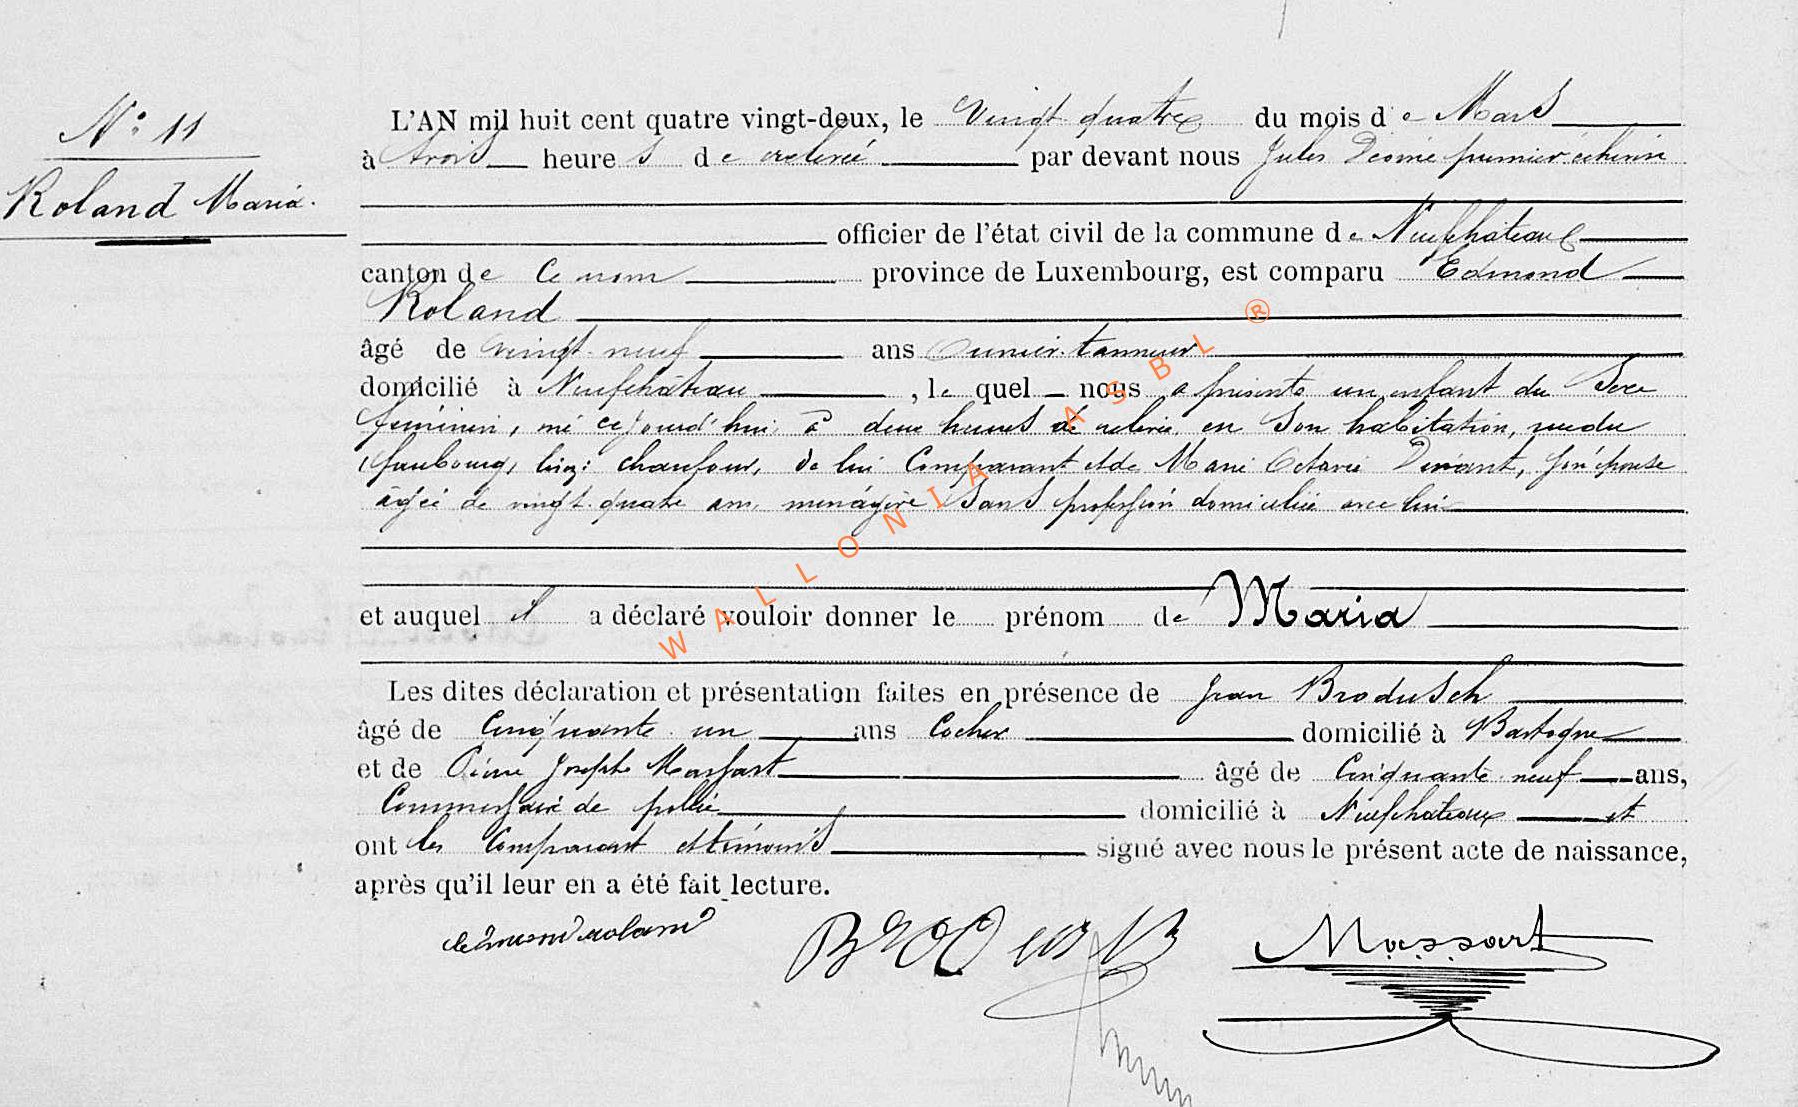 N.º 11
Roland Maria.
L'AN mil huit cent quatre vingt-deux, le vingt quatre du mois de Mars
à trois heures de relevée par devant nous Jules premier échevin
officier de l'état civil de la commune de Neufchateau
canton de ce nom province de Luxembourg, est comparu Edmond
Roland
âgé de vingt neuf ans ouvrier tanneur
domicilié à Neufchâteau, lequel nous a présenté un enfant du sexe
féminin, né cejourd'hui à deux heures de relevée en son habitation, rue du
faubourg, de lui comparant et de Marie Octavie, son épouse
âgée de vingt quatre ans, ménagère sans profession domiciliée avec lui
et auquel il a déclaré vouloir donner le prénom de Maria
Les dites déclaration et présentation faites en présence de Jean Brodusch
âgé de cinquante un ans Cocher domicilié à Bastogne
et de Joseph Massart âgé de cinquante neuf ans,
Commissaire de police domicilié à Neufchateau et
ont les comparant et témoins signé avec nous le présent acte de naissance,
après qu'il leur en a été fait lecture.
edmond roland
Massart
WALLONIA ASBL ®